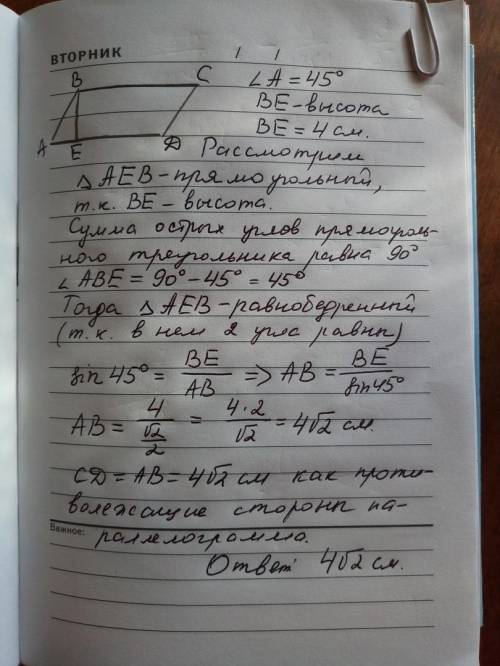 ВТОРНИК
B C ∠A = 45°
BE - высота
A E D BE = 4 см.
Рассмотрим
△ AEB - прямоугольный,
т.к. BE - высота.
Сумма острых углов прямоуголь-
ного треугольника равна 90°
∠ ABE = 90° - 45° = 45°
Тогда △ AEB - равнобедренный
(т.к. в нем 2 угла равны)
sin 45° = BE/AB => AB = BE/sin45°
AB = 4/(√2/2) = 4·2/√2 = 4√2 см.
CD = AB = 4√2 см как проти-
волежащие стороны па-
Важное: раллелограмма.
Ответ: 4√2 см.